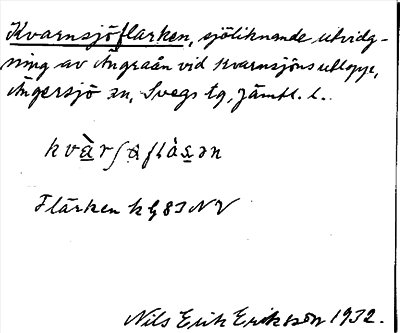 Kvarnsjöflarken, sjöliknande utvidg-
ning av Ångraån vid Kvarnsjöns utlopp,
Ängersjö sn, Svegs tg, Jämtl. l.
Flärken k bl 83 NV
Nils Erik Eriksson 1932.